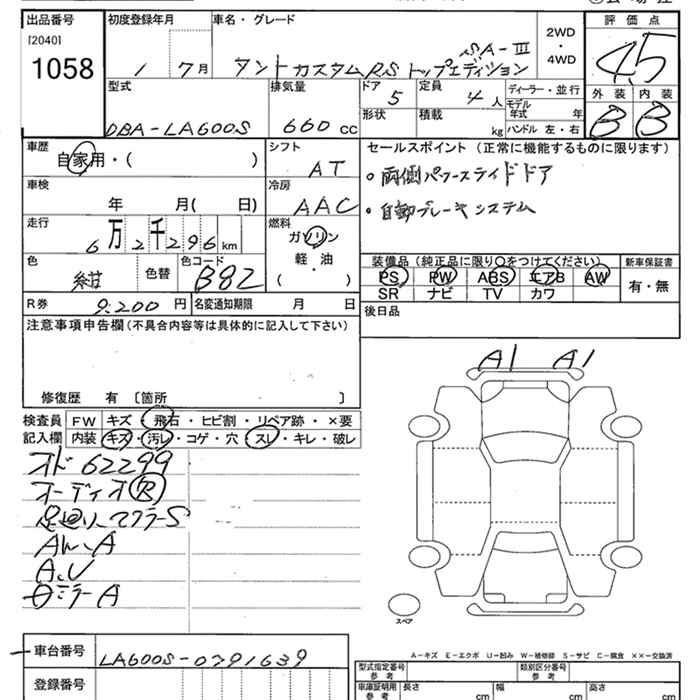 出品番号 初度登録年月 車名・グレード 2WD・4WD 評価点
[2040]
1058 1 7月 タントカスタムRS トップエディション SA-Ⅲ 4.5
型式 排気量 ドア 5 定員 4人 ディーラー・並行 外装 内装
DBA-LA600S 660cc 形状 積載 kg モデル年式 年 ハンドル 左・右 B B
車歴 シフト セールスポイント(正常に機能するものに限ります)
自家用・( ) AT ・両側パワースライドドア
車検 冷房
年 月( 日) AAC ・自動ブレーキシステム
走行 燃料
6万2千296km ガソリン
軽・油
( )
色 色替 色コード 装備品(純正品に限り○をつけてください) 新車保証書
紺 B82 PS PW ABS エアB AW 有・無
SR ナビ TV カワ
R券 9,200円 名変通知期限 月 日 後日品
注意事項申告欄(不具合内容等は具体的に記入して下さい)
修復歴 有 〔箇所 〕
A1 A1
検査員 FW キズ・飛石・ヒビ割・リペア跡・×要
記入欄 内装 キズ・汚レ・コゲ・穴・スレ・キレ・破レ
オド 62299
オーディオR
足廻リ マフラーS
A
スペア
車台番号 LA600S-0791639
A-キズ E-エクボ U-凹み W-補修跡 S-サビ C-腐食 ××-交換済
登録番号
型式指定番号 参考 類別区分番号 参考
車庫証明用 参考 長さ cm 幅 cm 高さ cm